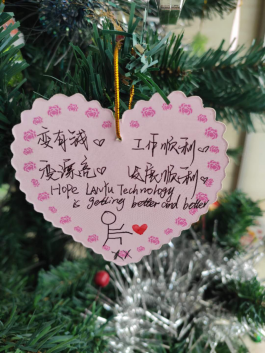 变有钱♡ 工作顺利♡
变漂亮♡ 发展顺利♡
Hope LanYu Technology
is getting better and better
XX